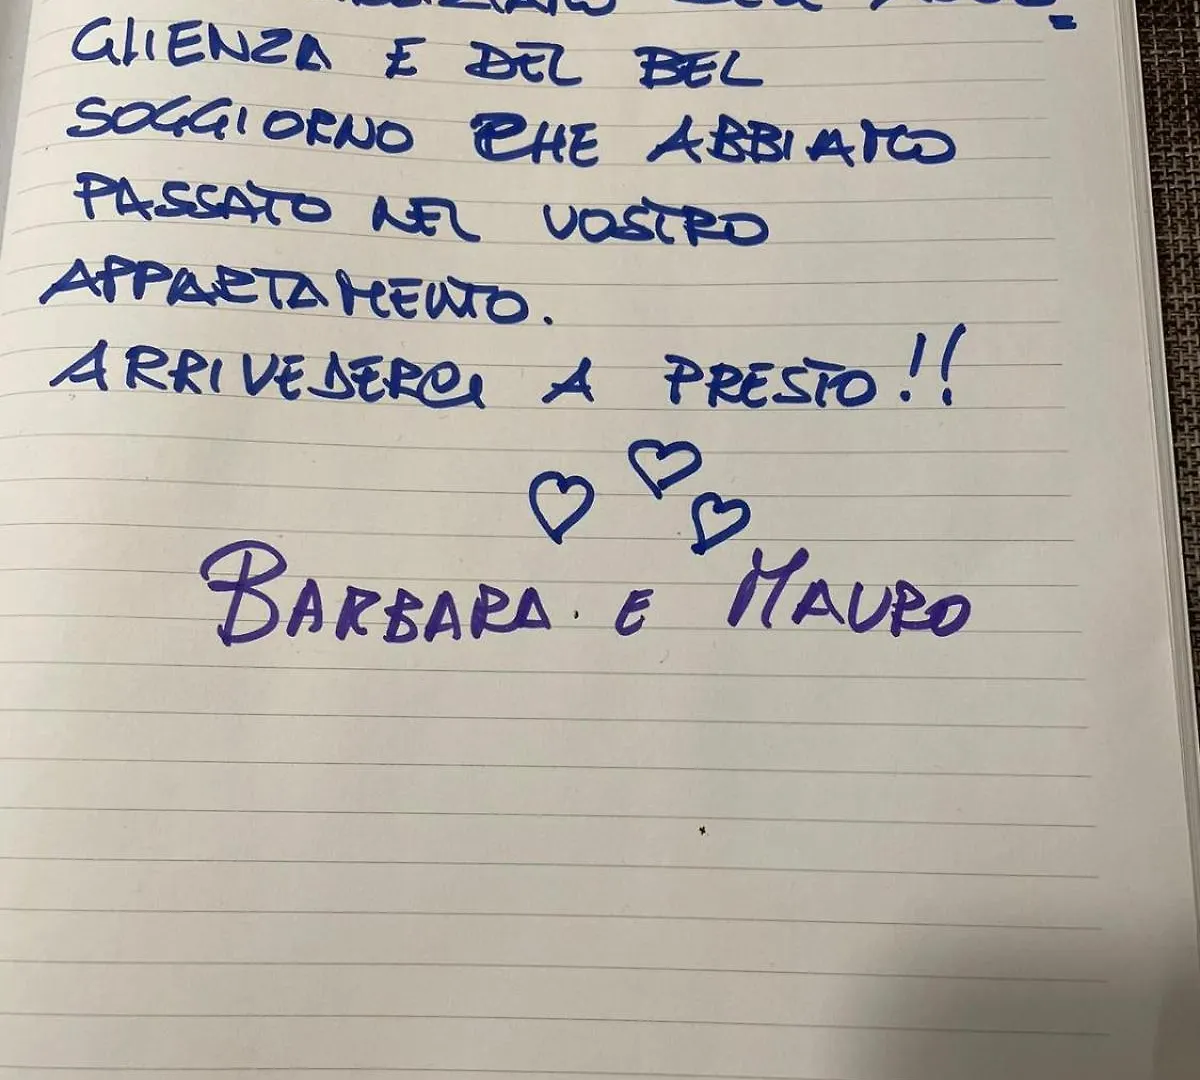 GLIENZA E DEL BEL
SOGGIORNO CHE ABBIAMO
PASSATO NEL VOSTRO
APPARTAMENTO.
ARRIVEDERCI A PRESTO!!
BARBARA E MAURO